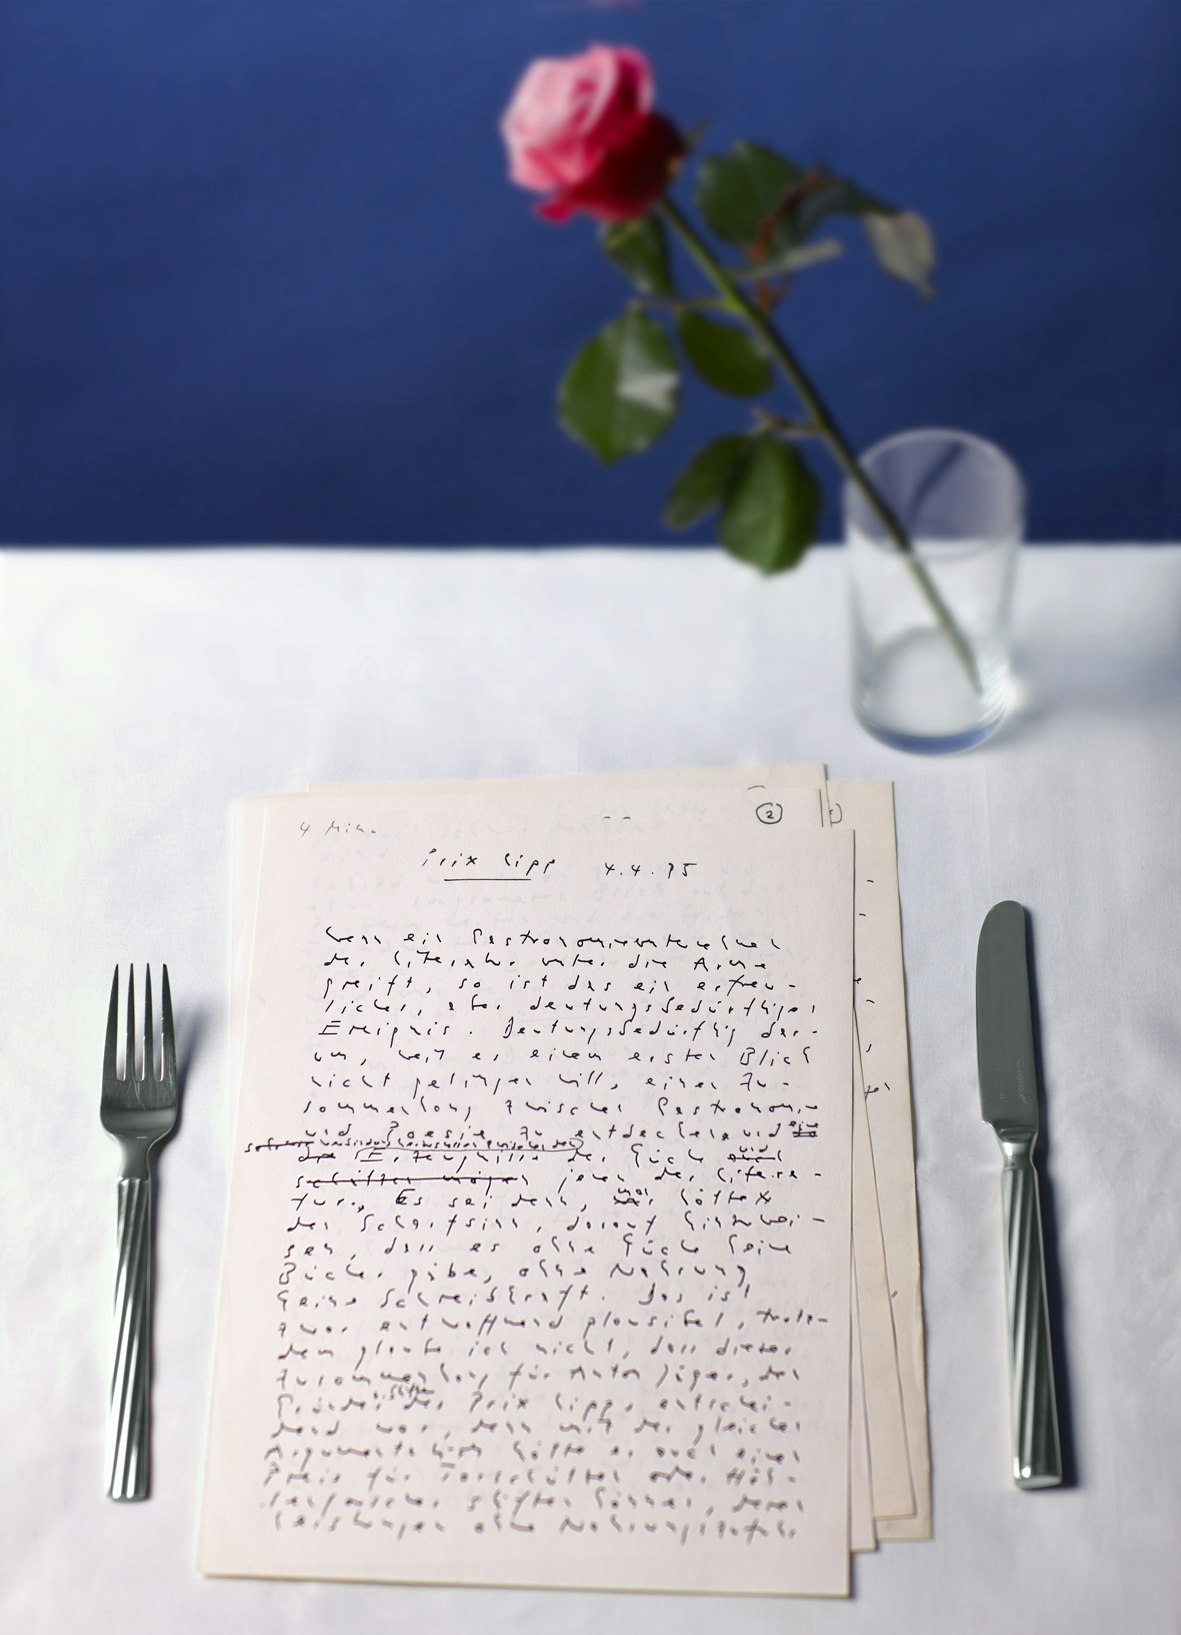 4 Min.
2
Prix Lipp 4.4.95
Wenn ein Gastronomieunternehmen
der Literatur unter die Arme
greift, so ist das ein erfreu-
licher, aber deutungsbedürftiges
Ereignis. Deutungsbedürftig dar-
um, weil es einem ersten Blick
nicht gelingen will, einen Zu-
sammenhang zwischen Gastronomie
und Poesie zu entdecken und
der Küche und
jenen der Litera-
tur. Es sei denn, man hätte
den Scharfsinn, darauf hinzuwei-
sen, dass es ohne Küche keine
Bücher gäbe, ohne Nahrung
keine Schreibkraft. Das ist
zwar entwaffnend plausibel, trotz-
dem glaube ich nicht, dass dieser
Zusammenhang für Anton Jäger, den
Gründer des Prix Lipp, entschei-
dend war, denn mit der gleichen
Argumentation hätte er auch einen
Preis für Torschützen oder Höh-
lenforscher stiften können, deren
Leistungen ohne Nahrungszufuhr